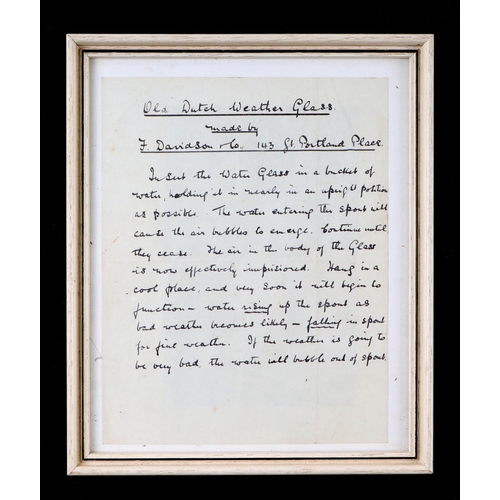 Old Dutch Weather Glass.
made by
F. Davidson & Co. 143 Gt. Portland Place
Insert the Water Glass in a bucket of
water, holding it in nearly in an upright position
as possible. The water entering the spout will
cause the air bubbles to emerge. Continue until
they cease. The air in the body of the Glass
is now effectively imprisoned. Hang in a
cool place, and very soon it will begin to
function – water rising up the spout as
bad weather becomes likely – falling in spout
for fine weather. If the weather is going to
be very bad, the water will bubble out of spout.